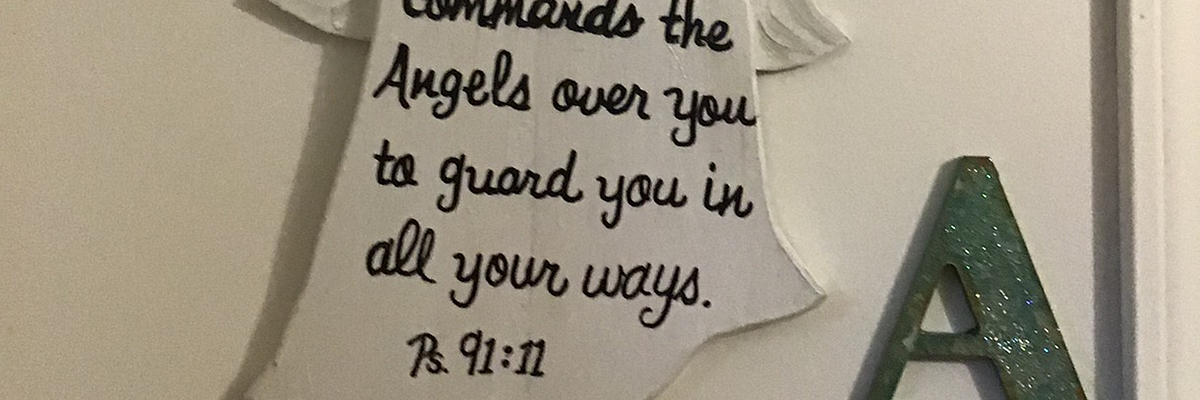 commands the
Angels over you
to guard you in
all your ways.
Ps. 91:11
A